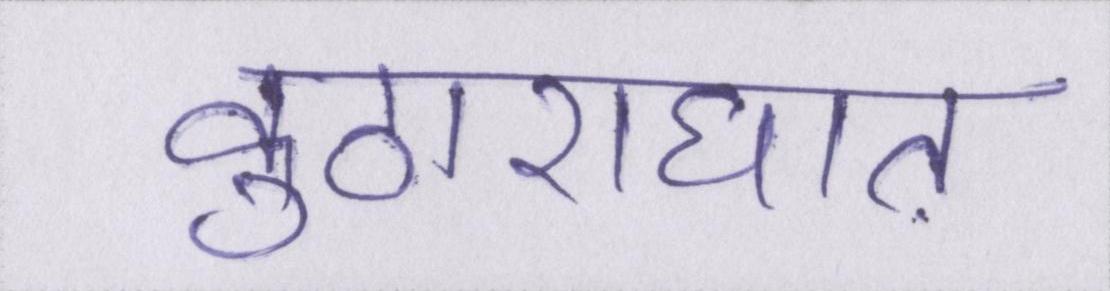 कुठाराघात